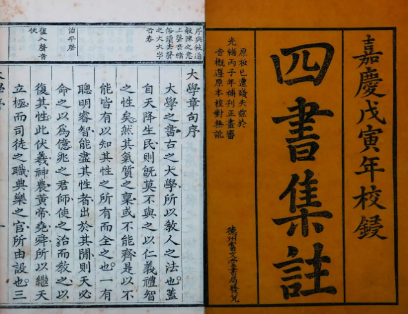 嘉慶戊寅年校鋟
四書集註
原板已遭殘失茲於
光緒丙子年補刊正畫審
音概遵原本校對無訛
大學章句序
大學之書古之大學所以教人之法也蓋
自天降生民則既莫不與之以仁義禮智
之性矣然其氣質之稟或不能齊是以不
能皆有以知其性之所有而全之也一有
聰明睿智能盡其性者出於其間則天必
命之以為億兆之君師使之治而教之以
復其性此伏羲神農黃帝堯舜所以繼天
立極而司徒之職典樂之官所由設也三